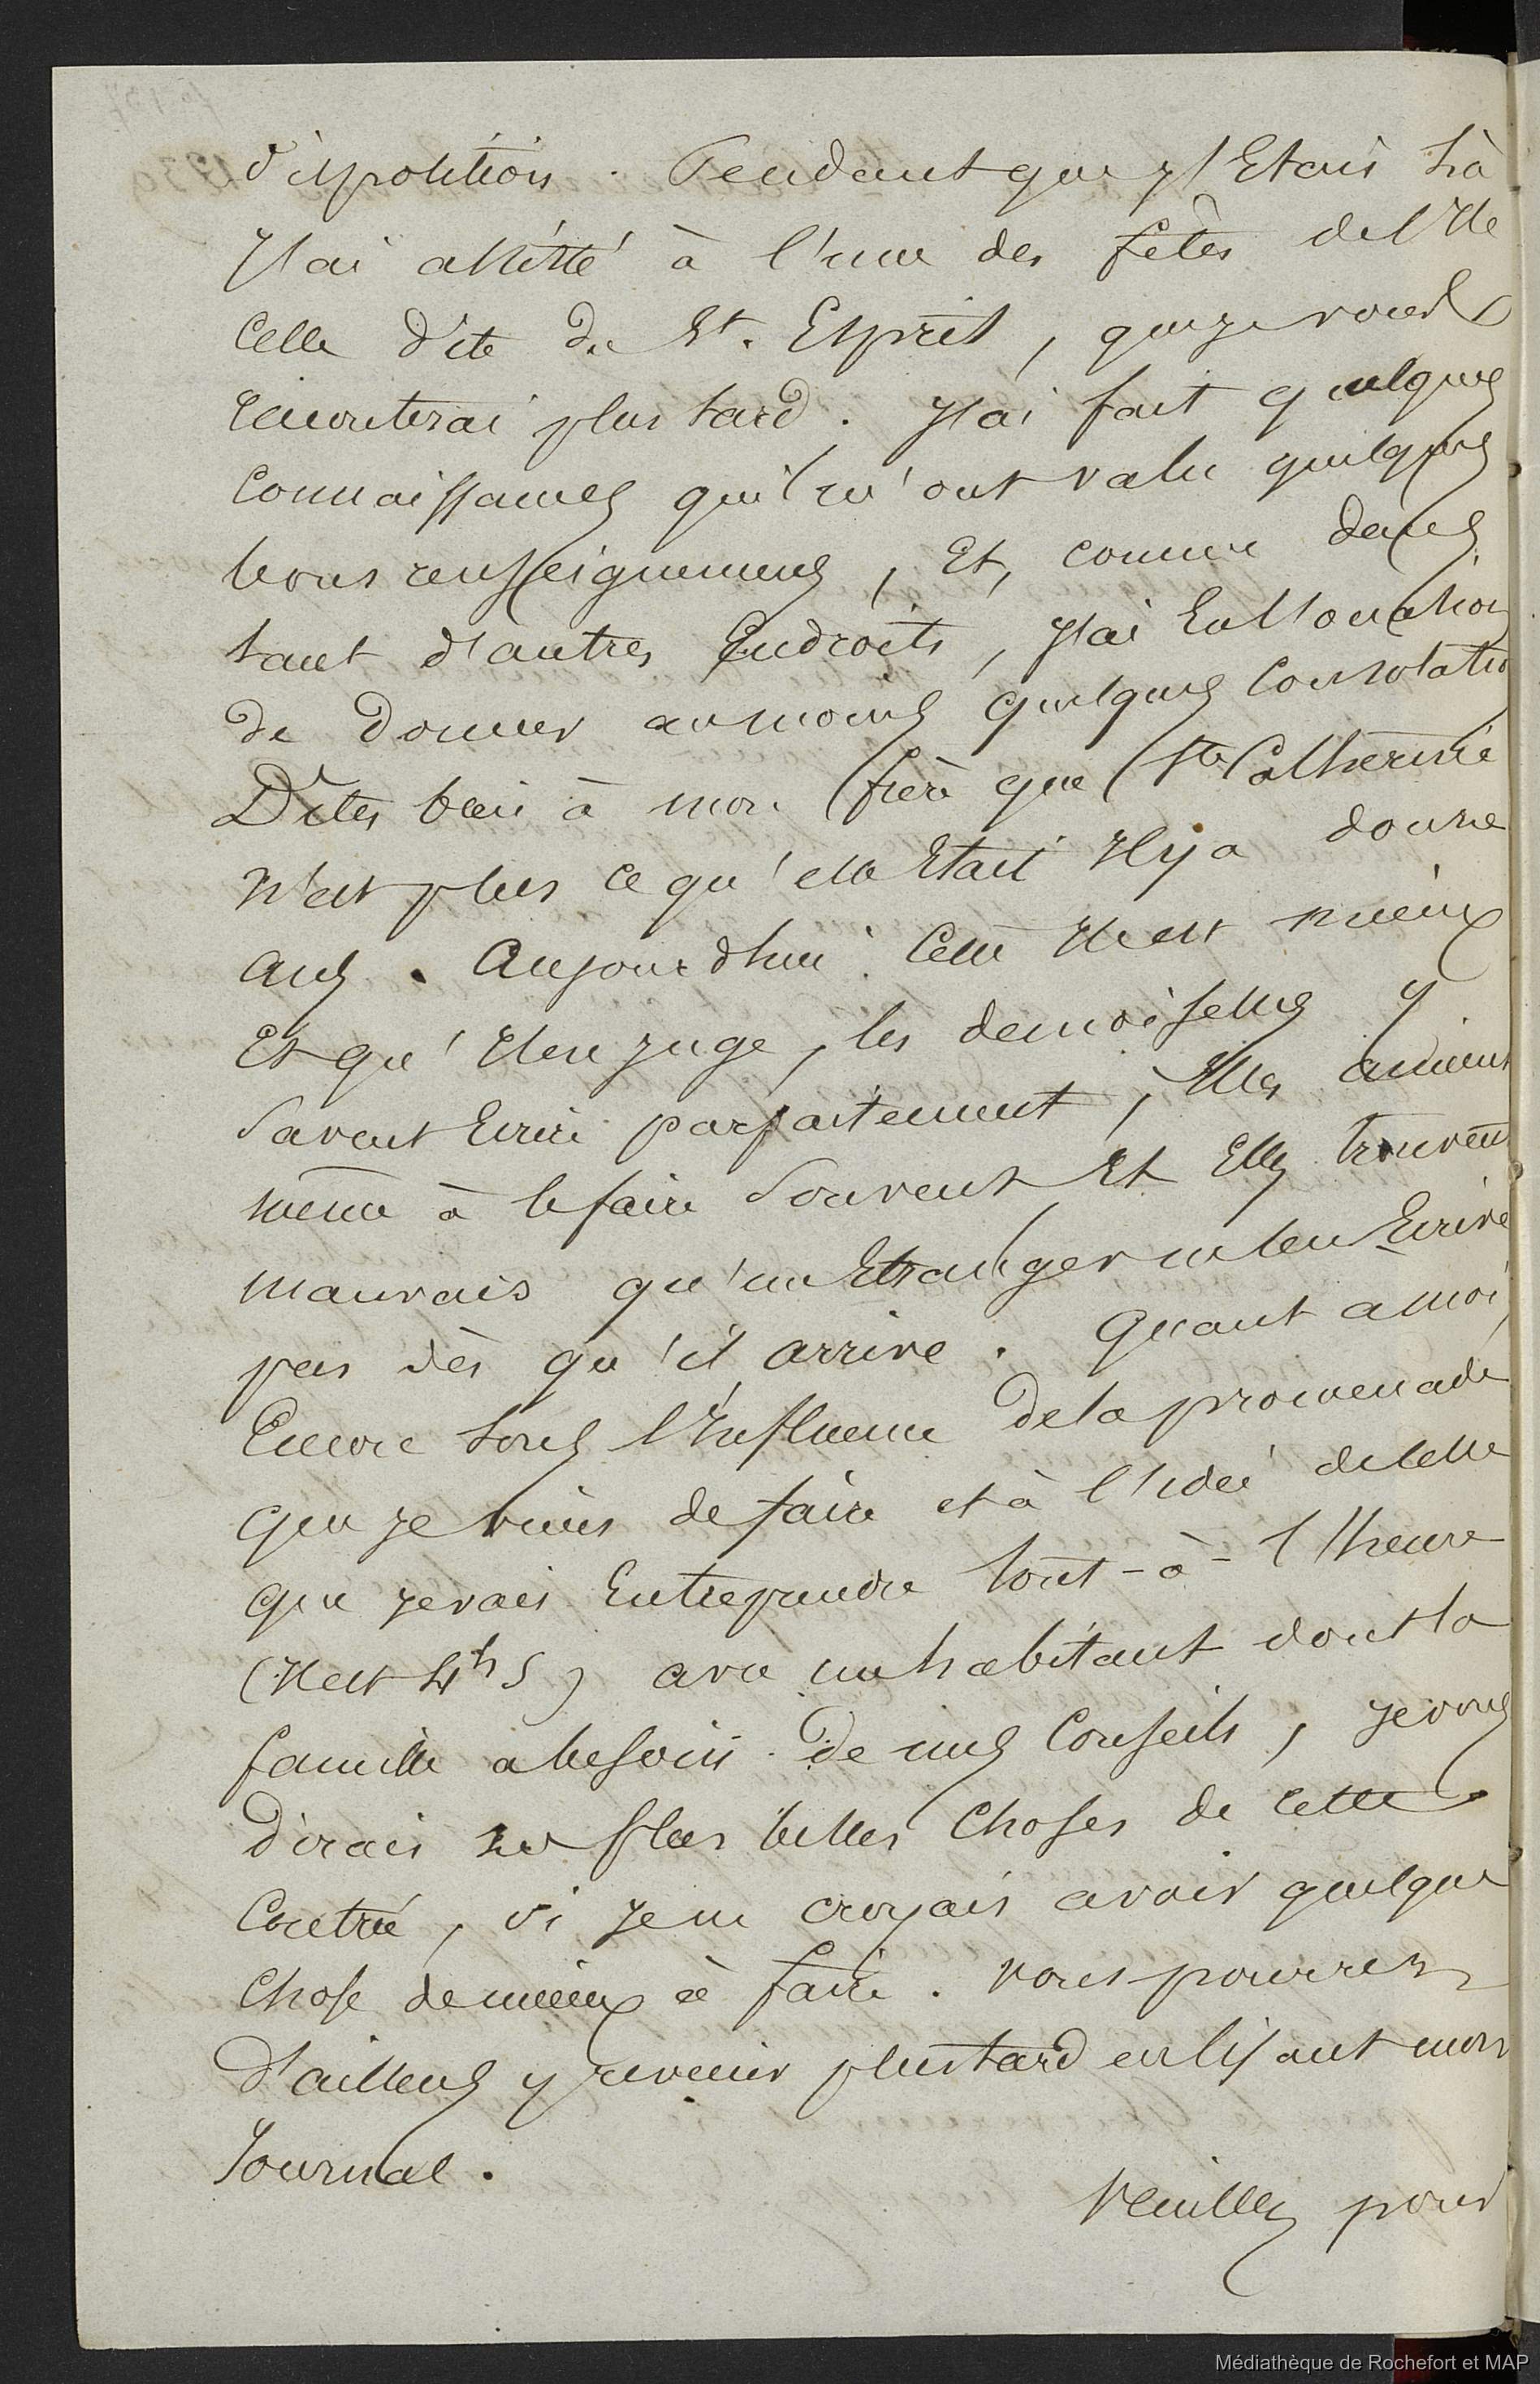 disposition. Pendant que j'Etais Là
J'ai assisté à l'une des fêtes de l'Ile
Celle dite du St. Esprit, que je vous
raconterai plus tard. J'ai fait quelques
Connaissances qui m'ont valu quelques
bons renseignements, Et, comme dans
tant d'autres Endroits, j'ai Eu l'occasion
de donner au moins quelques Consolations
Dites bien à mon frère que Ste Catherine
N'est plus ce qu'elle Etait Il y a douze
ans. Aujourdhui Cette Ile est mieux
Et qu'Il en juge, les demoiselles y
Savent Ecrire parfaitement, Elles aiment
même à le faire Souvent Et Elles trouvent
mauvais qu'un Etranger ne leur Ecrive
pas dès qu'il arrive. Quant a moi,
Encore Sous l'Influence de la promenade
que je viens de faire et à l'idée de celle
que je vais Entreprendre tout-à-l'heure
(Il est 4h S) avec un habitant dont la
famille a besoin de mes Conseils, je vous
dirais les plus belles Choses de cette
Contrée, si je ne croyais avoir quelque
Chose de mieux à faire. Vous pourrez
D'ailleurs y revenir plus tard en lisant mon
Journal.
Veuillez pour
Médiathèque de Rochefort et MAP